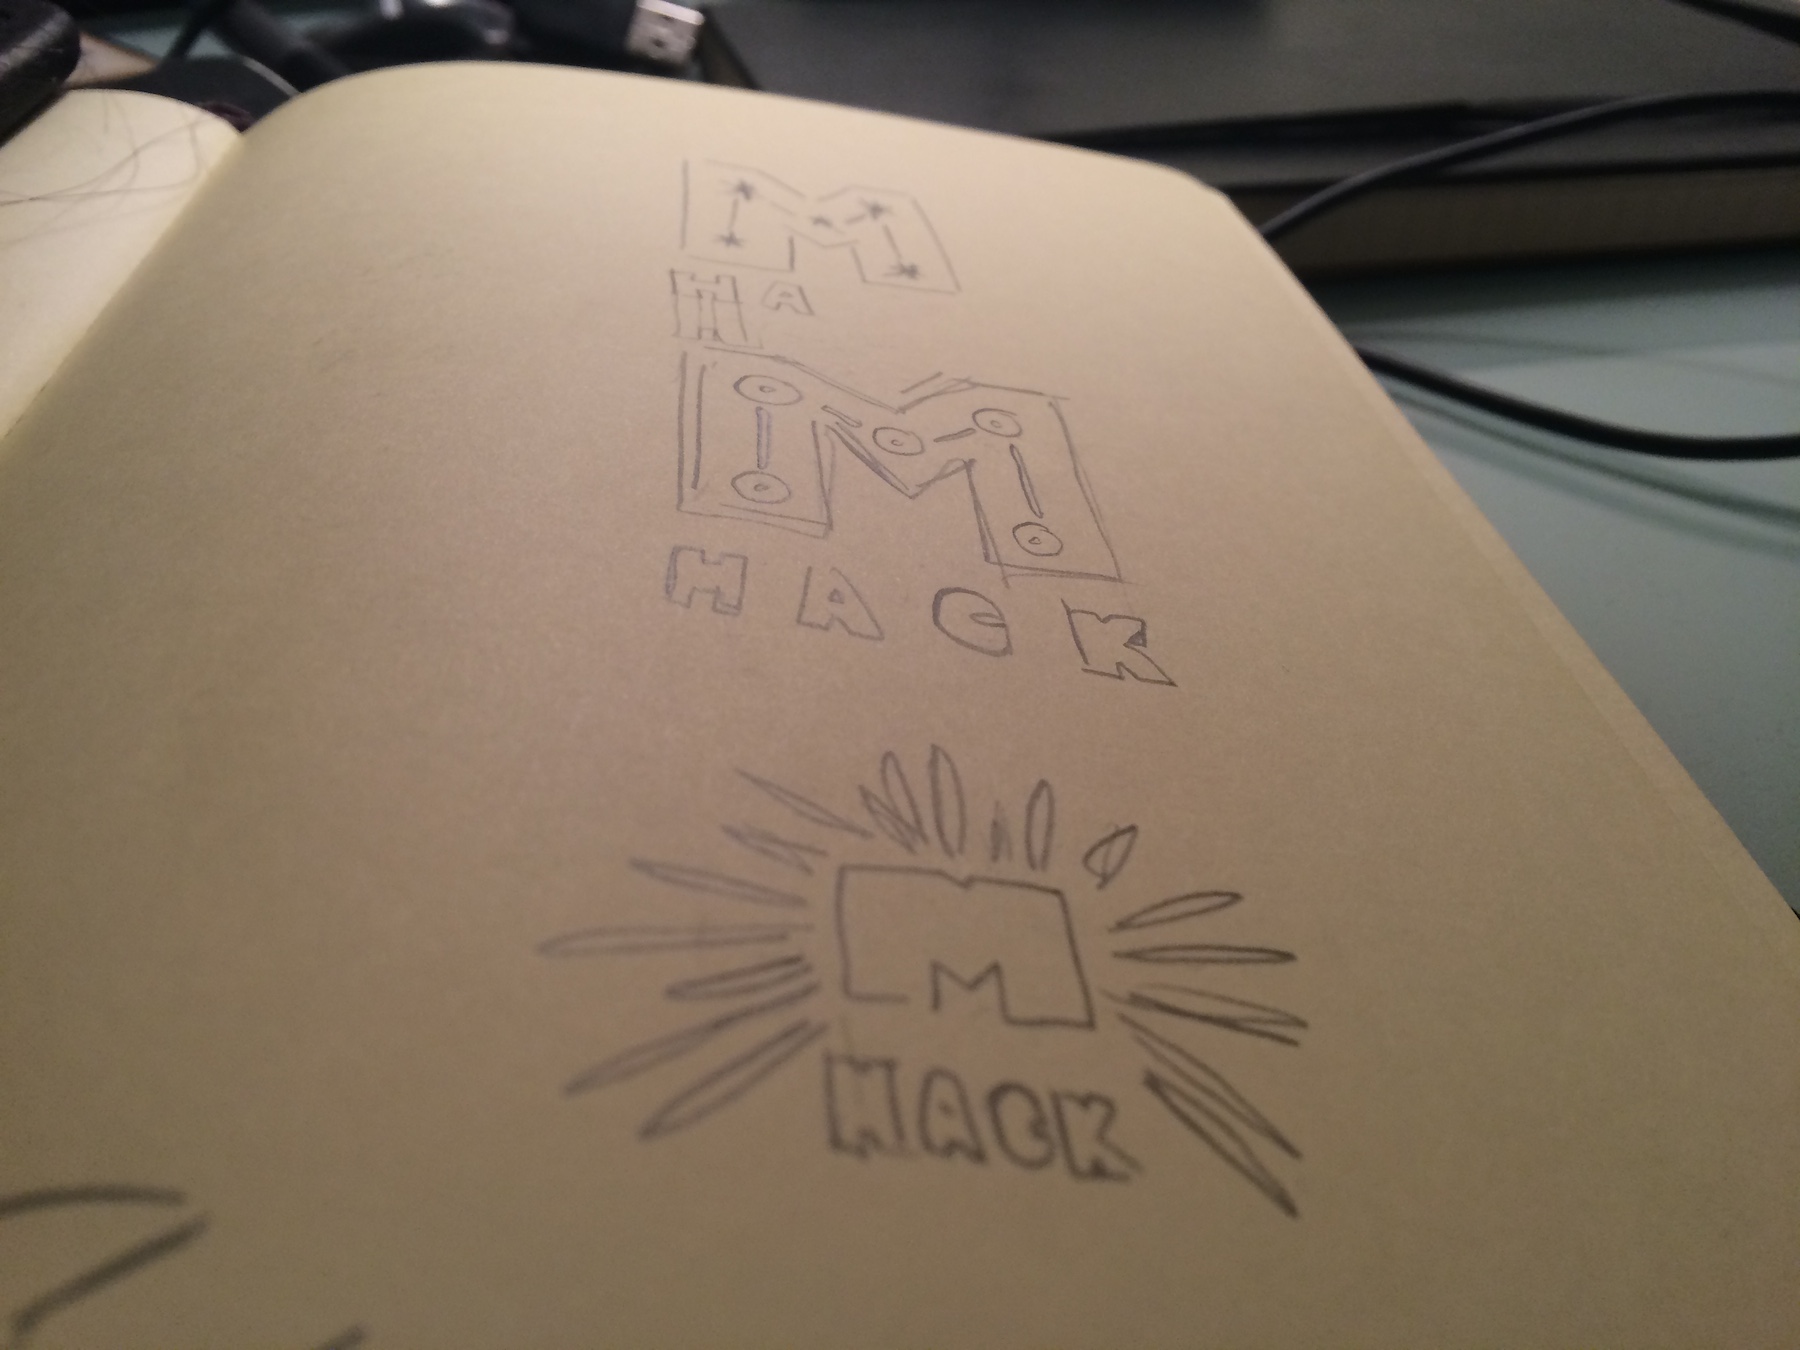 M
HA
M
HACK
M
HACK